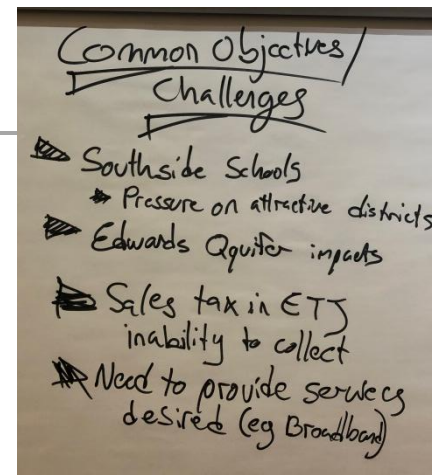 Common Objectives/
Challenges
Southside Schools
Pressure on attractive districts
Edwards Aquifer impacts
Sales tax in ETJ
inability to collect
Need to provide services
desired (eg Broadband)